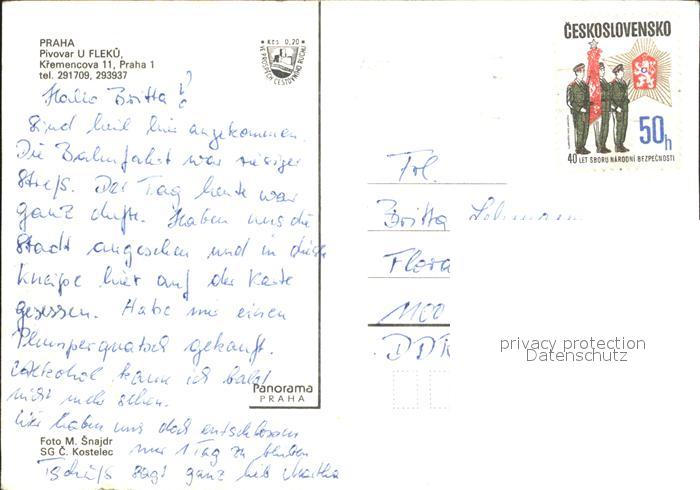 PRAHA
Pivovar U FLEKŮ,
Křemencova 11, Praha 1
tel. 291709, 293937
Kčs 0,20
VE PROSPĚCH CESTOVNÍHO RUCHU
ČESKOSLOVENSKO
50h
40 LET SBORU NÁRODNÍ BEZPEČNOSTI
Hallo Britta!
Sind heil hier angekommen.
Die Bahnfahrt war riesiger
Streß. Der Tag heute war
ganz dufte. Haben uns die
Stadt angesehen und in diese
Kneipe hier auf der Karte
gesessen. Habe mir einen
gekauft.
Alkohol kann ich bald
nicht mehr sehen.
Wir haben uns doch entschlossen
nur 1 Tag zu bleiben
Tschüß sagt ganz lieb Martha
Frl.
Britta
Flora
1100
DDR
privacy protection
Datenschutz
Panorama
PRAHA
Foto M. Šnajdr
SG Č. Kostelec